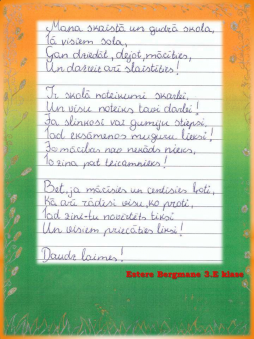 Mana skaistā un gudrā skola,
Tā visiem sola,
Gan dziedāt, dejot, mācīties,
Un dažreiz arī slaistīties!
Ir skolā noteikumi skarbi,
Un visu noteiks tavi darbi!
Ja slinkosi vai gumiju stiepsi,
Tad eksāmenos muguru lieksi!
Jo mācības nav nekāds nieks,
To zina pat teicamnieks!
Bet, ja mācīsies un centīsies ļoti,
Kā arī rādīsi visu, ko proti,
Tad zini - tu novērtēts tiksi
Un visiem priecāties liksi!
Daudz laimes!
Estere Bergmane 3.E klase